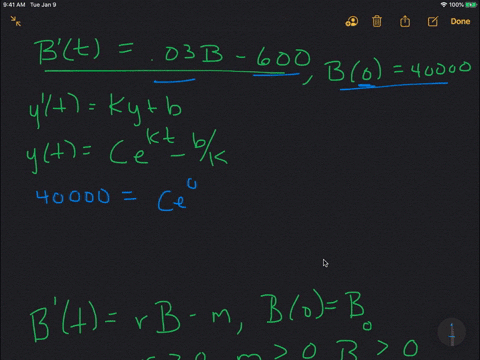 9:41 AM Tue Jan 9 100%
Done
B'(t) = .03B - 600, B(0) = 40000
y'(t) = Ky + b
y(t) = Ce^kt - b/k
40000 = Ce^0
B'(t) = rB - m, B(0) = B₀
m > 0 B > 0